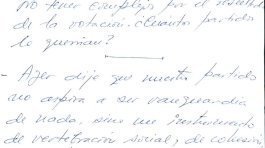 no tener complejos por el resultado
de la votación. ¿Cuántos partidos
lo querrían?
- Ayer dije que nuestro partido
no aspira a ser vanguardia
de nada, sino un instrumento
de vertebración social, de cohesión